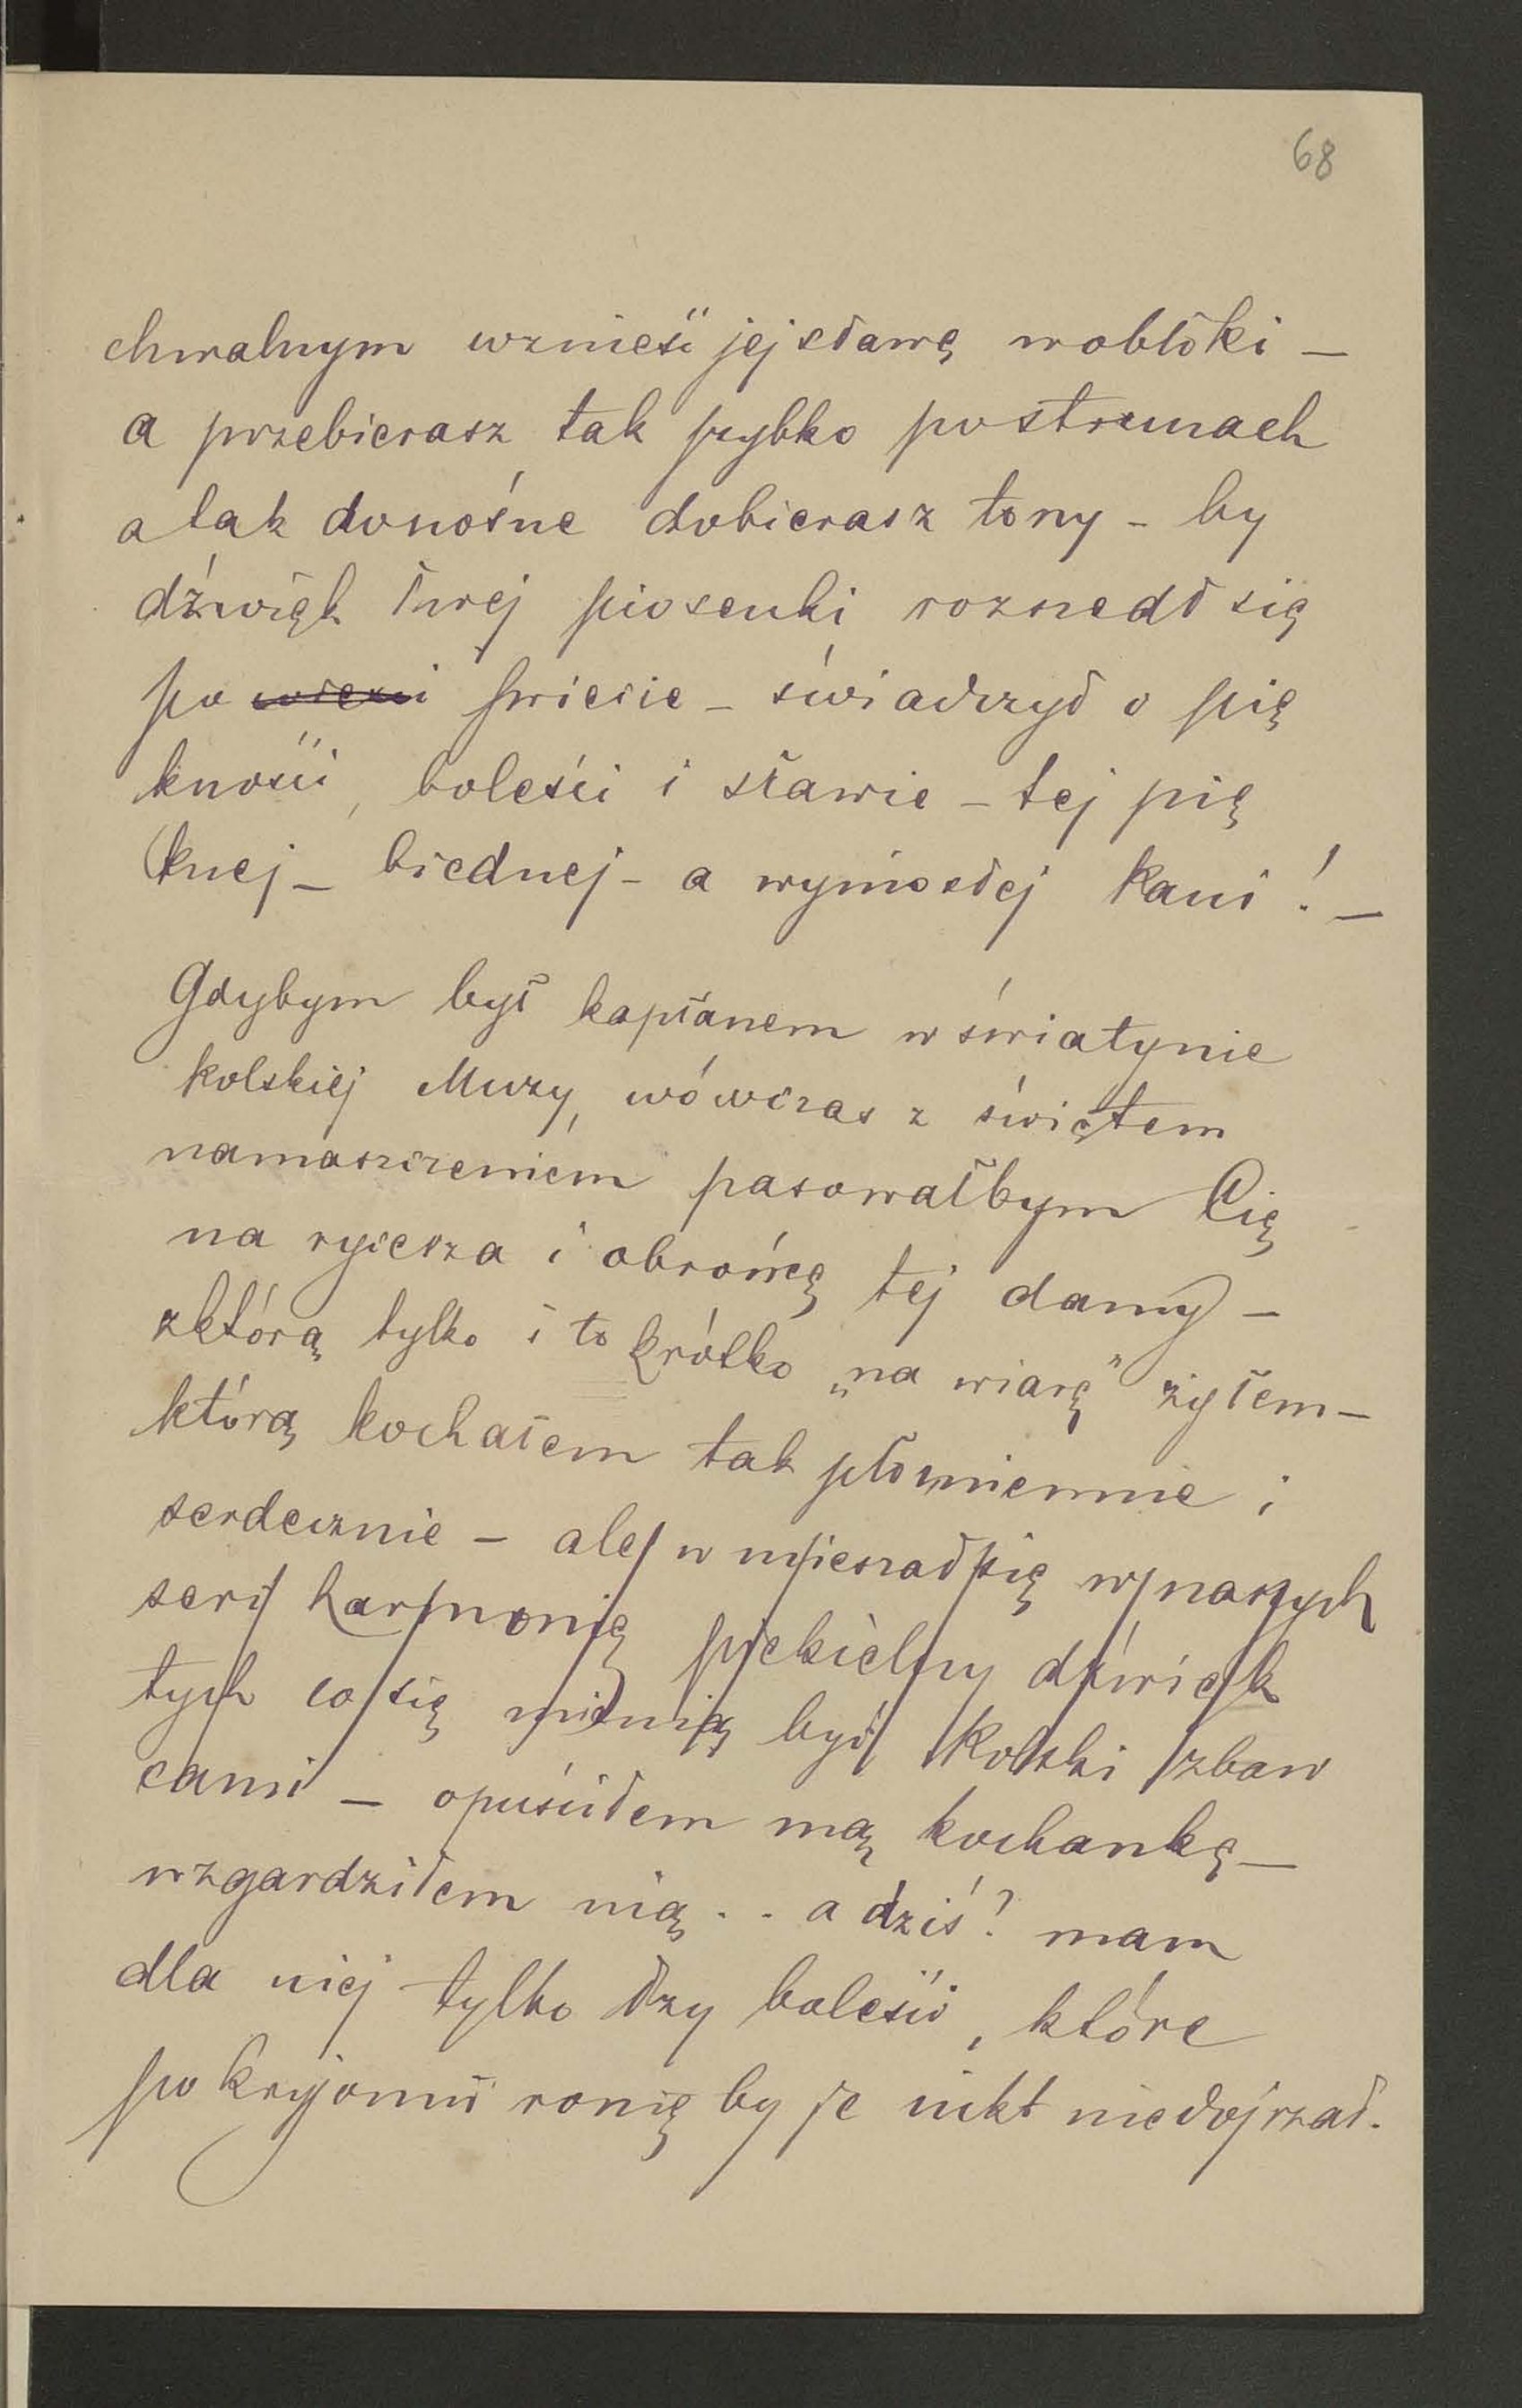 68
chwalnym wznieść jej sławę w obłoki –
a przebierasz tak szybko po strunach
a tak donośne dobierasz tony – by
dźwięk twej piosenki rozszedł się
po świecie – świadczył o pię
kności, boleści i sławie – tej pię
knej – biednej – a wyniosłej Pani! –
Gdybym był kapłanem w świątynie
Polskiej Muzy, wówczas z świętem
namaszczeniem pasowałbym Cię
na rycerza i obrońcę tej damy –
z którą tylko i to krótko „na wiarę” żyłem –
którą kochałem tak płomiennie i
serdecznie – ale w mieszał się w naszych
serc harmonię piekielny dźwięk
tych co się mienią być Polski zbaw
cami – opuściłem mą kochankę –
wzgardziłem nią . . a dziś? mam
dla niej tylko łzy boleści, które
po kryjomu ronię by je nikt nie dojrzał.